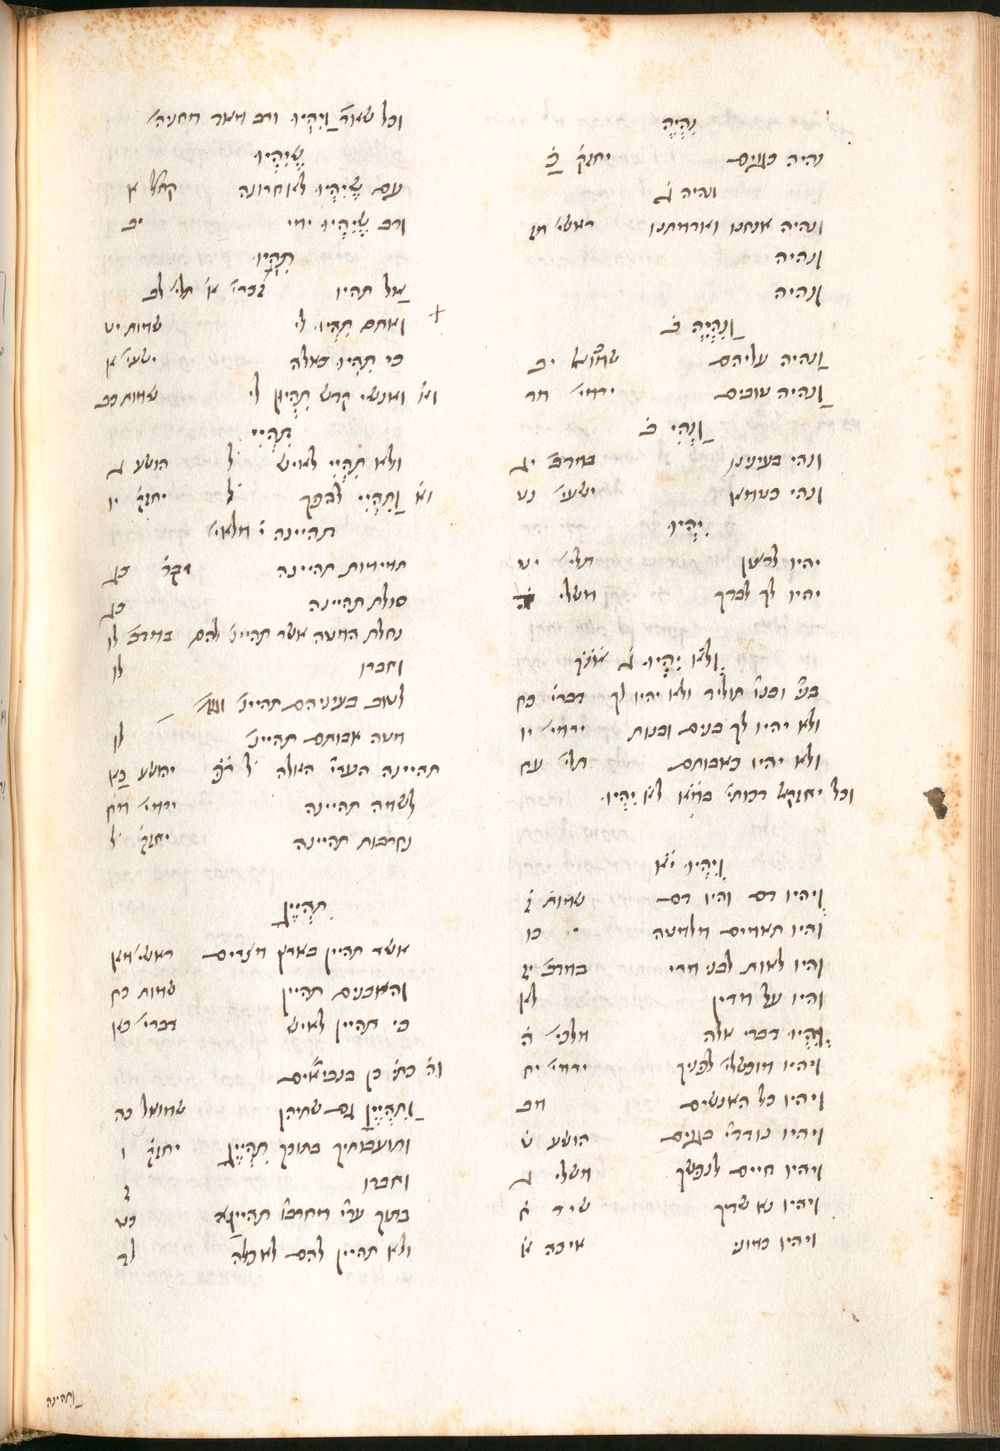 נִהְיֶה
נהיה כגוים יחזק׳ כ׳
ונהיה ג
ונהיה אנחנו ואדמתנו ראשי׳ מז
ונהיה
ונהיה
וַנִהְיֶה ב׳
ונהיה עליהם שמואל יב
ונהיה עובים ירמי׳ מד
וַנְהִי ב׳
ונהי בעינינו במדב׳ יג
ונהי כטמא ישעי׳ סד
יִהְיוּ
יהיו לרצון תלי׳ יט
יהיו לך לבדך משלי ה
וְלֹא יִהְיוּ ג
בני׳ ובנו׳ תוליד ולא יהיו לך דברי׳ כח
ולא יהיו לך בנים ובנות ירמי׳ יו
ולא יהיו כאבותם תלי׳ עח
וכל יחזקאל דכותי׳ לא יִהְיוּ
וְיִהְיוּ
ויהיו דם והיו דם שמות ז
והיו תאמים מלמטה כו
והיו לאות לבני מרי במדב׳ יז
והיו על מדין לא
וְיִהְיוּ דברי אלה מלכי׳ ה
ויהיו מוכשלי׳ לפניך ירמי׳ יח
ויהיו כל האנשים מב
ויהיו נודדי׳ בגוים הושע ט
ויהיו חיים לנפשך משלי ג
ויהיו נא שדיך שיר ח
ויהיו כמוני איכה א
וכל שאר וַיִהְיוּ
שֶׁיִהְיוּ
עם שֶׁיִהְיוּ לאחרונה קהל׳ א
שֶׁיִהְיוּ ימי יב
תִהְיוּ
אל תהיו
ואתם תִהְיוּ לי שמות יט
כי תִהְיוּ כאלה ישעי׳ א
ואנשי קדש תִהְיוּן לי שמות כב
תִהְיִי
ולא תִהְיִי לאיש הושע ג
וַתִהְיִי לבפך יחזק׳ יו
תהיינה ז׳ מלאי׳
תמימות תהיינה כג
סולת תהיינה כג
נחלת המטה אשר תהיינ׳ להם במדב׳ לו
וחברו לו
לטוב בעיניהם תהיינ׳
מטה אבותם תהיינ׳ לו
תהיינה הערי׳ האלה יהושע כא
לשמה תהיינה ירמי׳ מח
נחרבות תהיינה יחזק׳
תִהְיֶיןָ
אשר תהיין בארץ מצרים ראשי׳ מא
והאבנים תהיין שמות כח
כי תהיין לאיש דברי׳ כא
וה׳ כתי׳ כן בנביאים
וַתִהְיֶיןָ גם שתיהן שמואל כה
ותועבותיך בתוכך תִהְיֶיןָ יחזק׳ ז
וחברו
בתוך ערי׳ מחרבו׳ תהיינה כט
ולא תהיין להם לאכלה לד
ותהיינה